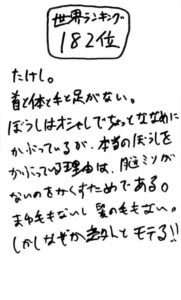 世界ランキング
182位
たけし。
首と体と手と足がない。
ぼうしはオシャレでちょっとななめに
かぶっているが、本当のぼうしを
かぶっている理由は、脳ミソが
ないのをかくすためである。
まゆ毛もないし髪の毛もない。
しかしなぜか意外とモテる!!